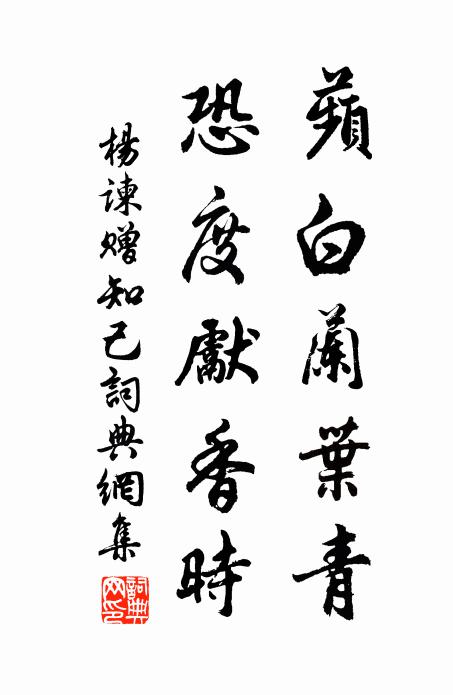 蘋白蘭葉青
恐度獻香時
楊諫贈知己詞典網集
詞典網印